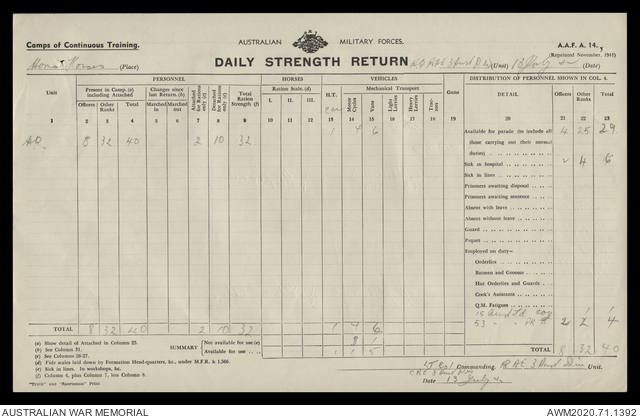 Camps of Continuous Training.
AUSTRALIAN MILITARY FORCES.
A.A.F. A. 14.
(Reprinted November, 1941)
(Place)
DAILY STRENGTH RETURN
(Unit) 13 July (Date)
PERSONNEL
HORSES
VEHICLES
DISTRIBUTION OF PERSONNEL SHOWN IN COL. 4.
Unit
Present in Camp. (a) including Attached
Changes since last Return. (b)
Attached for Rations only (c)
Detached for Rations only (c)
Total Ration Strength (f)
Ration Scale. (d)
H.T.
Mechanical Transport
Guns
DETAIL
Officers
Other Ranks
Total
Marched in
Marched out
I.
II.
III.
Motor Cycles
Vans
Light Lorries
Heavy Lorries
Tractors
Officers
Other Ranks
Total
1 2 3 4 5 6 7 8 9 10 11 12 13 14 15 16 17 18 19 20 21 22 23
8 32 40 2 10 32 1 4 6
Available for parade (to include all those carrying out their normal duties) 4 25 29
Sick in hospital 2 4 6
Sick in lines
Prisoners awaiting disposal
Prisoners awaiting sentence
Absent with leave
Absent without leave
Guard
Piquet
Employed on duty—
Orderlies
Batmen and Grooms
Hut Orderlies and Guards
Cook's Assistants
Q.M. Fatigues
2 2 4
TOTAL 8 32 40 2 10 32 1 4 6
TOTAL 8 32 40
(a) Show detail of Attached in Column 25.
(b) See Column 31.
(c) See Columns 26-27.
(d) Fide scales laid down by Formation Head-quarters, &c., under M.F.R. & I.366.
(e) Sick in lines. In workshops, &c.
(f) Column 4, plus Column 7, less Column 8.
SUMMARY
Not available for use (e) 8 1
Available for use 1 1 5
"Truth" and "Sportsman" Print
Lt Col Commanding, Unit.
Date 13 July
AUSTRALIAN WAR MEMORIAL
AWM2020.71.1392